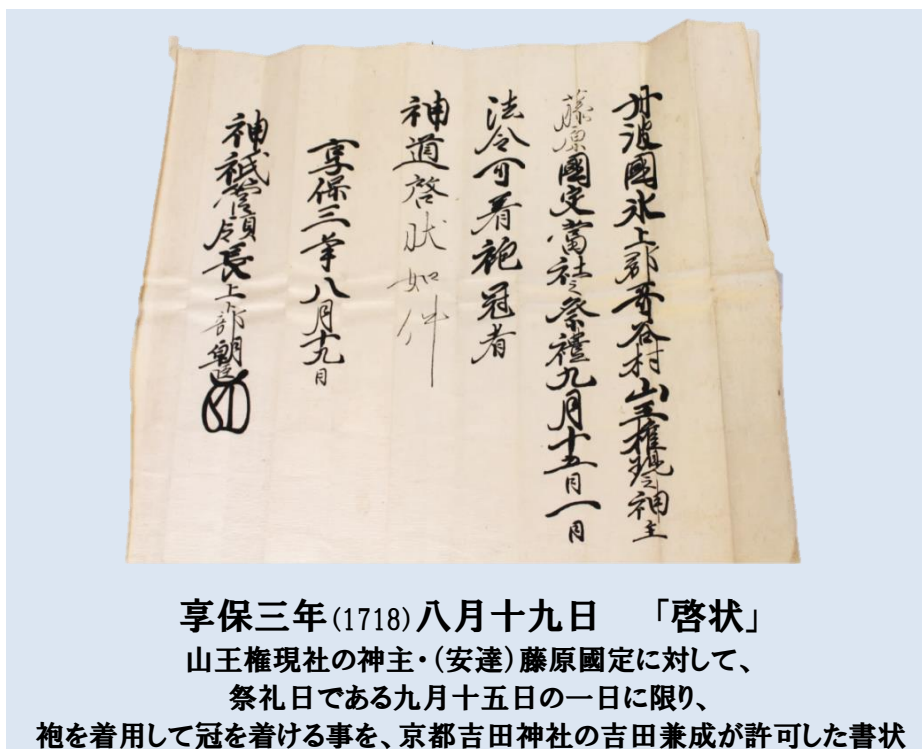 丹波國氷上郡哥谷村山王権現之神主
藤原國定當社之祭禮九月十五日一日
法令可着袍冠者
神道啓状如件
享保三年八月十九日
神祇管領長上卜部朝臣
享保三年(1718)八月十九日 「啓状」
山王権現社の神主・(安達)藤原國定に対して、
祭礼日である九月十五日の一日に限り、
袍を着用して冠を着ける事を、京都吉田神社の吉田兼成が許可した書状